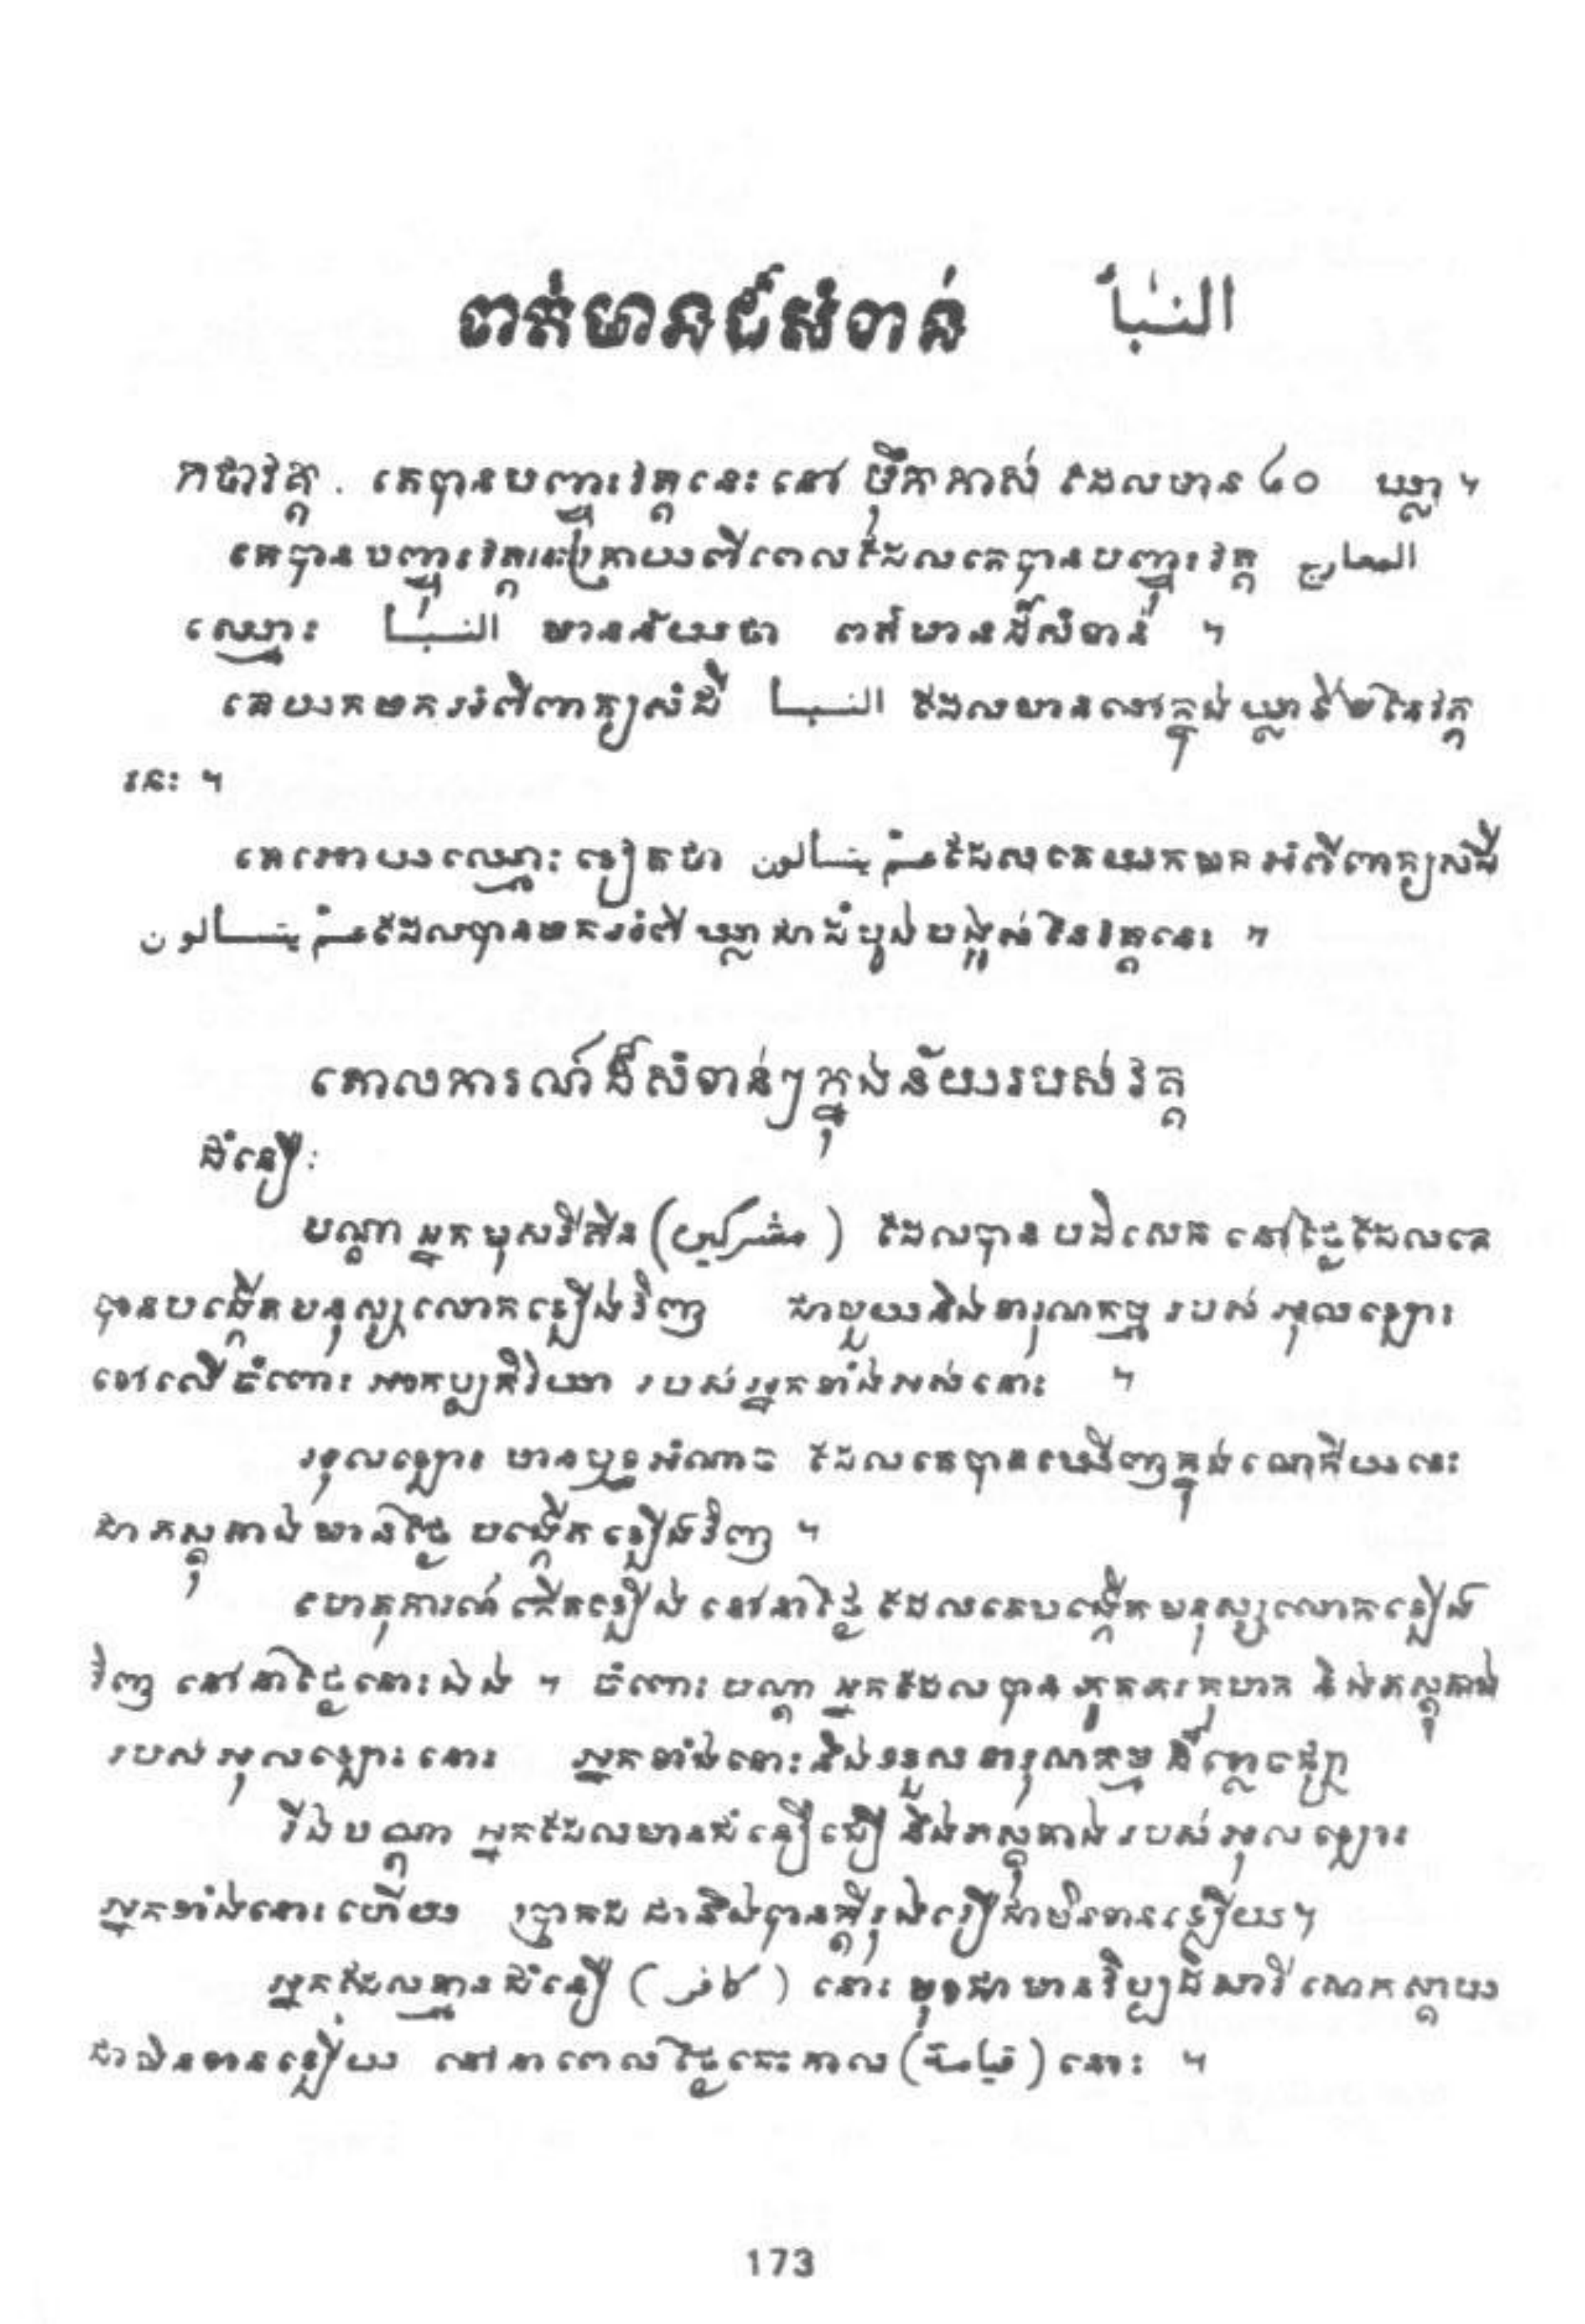 ពត៌មានដ៏សំខាន់ النبأ
កថាវគ្គ . គេបានបញ្ចុះវគ្គនេះនៅ ម៉ឹកកាស់ ដែលមាន ៤០ ឃ្លា ។
គេបានបញ្ចុះវគ្គនេះក្រោយពីពេលដែលគេបានបញ្ចុះវគ្គ المعارج
ឈ្មោះ النبأ មានន័យថា ពត៌មានដ៏សំខាន់ ។
គេយកមកអំពីពាក្យសំដី النبأ ដែលមាននៅក្នុងឃ្លាទី២នៃវគ្គ
នេះ ។
គេអោយឈ្មោះទៀតថា عم يتسألون ដែលគេយកមកអំពីពាក្យសំដី
عم يتسألون ដែលបានមកអំពីឃ្លាជាដំបូងបង្អស់នៃវគ្គនេះ ។
គោលការណ៍ដ៏សំខាន់ៗក្នុងន័យរបស់វគ្គ
ជំនឿ:
បណ្តា អ្នកមុសរីគីន (مشركين) ដែលបានបដិសេគ នៅថ្ងៃដែលគេ
បានបង្កើតមនុស្សលោកឡើងវិញ ជាមួយនិងទារុណកម្ម របស់ អុលឡោះ
ទៅលើចំពោះ អាកប្បកិរិយា របស់អ្នកទាំងអស់នោះ ។
អុលឡោះ មានឬទ្ធអំណាច ដែលគេបានឃើញក្នុងលោកីយនេះ
ជាភស្តុតាងមានថ្ងៃ បង្កើតឡើងវិញ ។
ហេតុការណ៍ កើតឡើង នៅនាថ្ងៃ ដែលគេបង្កើតមនុស្សលោកឡើង
វិញ នៅនាថ្ងៃនោះឯង ។ ចំពោះ បណ្តា អ្នកដែលបាន ភូតភរកុហក និងភស្តុតាង
របស់អុលឡោះ នោះ អ្នកទាំងនោះនឹងទទួលទារុណកម្ម ដ៏ក្តៅផ្សា
រីឯបណ្តា អ្នកដែលមានជំនឿជឿ និងភស្តុតាងរបស់អុលឡោះ
អ្នកទាំងនោះហើយ ប្រាកដ ជានឹងបានក្តីរុងរឿជាមិនខានឡើយ។
អ្នកដែលគ្មានជំនឿ (كافر) នោះ មុខជា មានវិប្បដិសារី សោកស្តាយ
ជាមិនខានឡើយ នៅនាពេលថ្ងៃនោះកាល (قيامة) នោះ ។
173